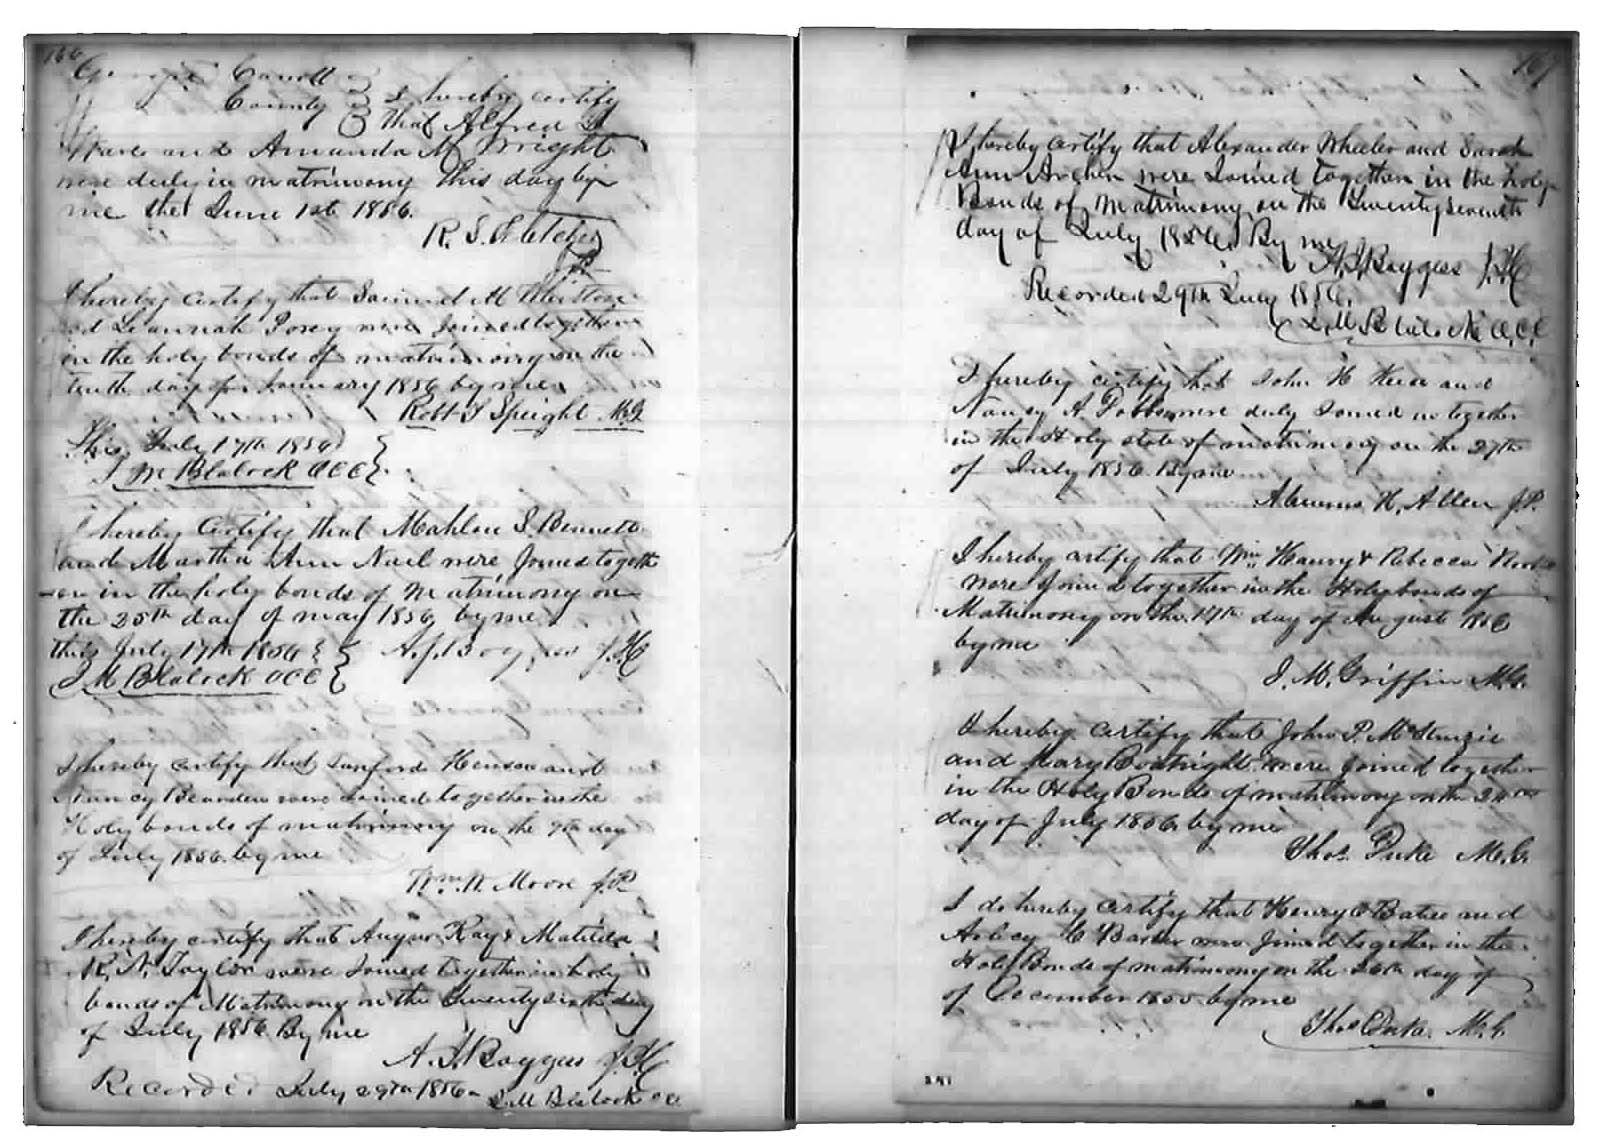 166
Georgia Carroll
County I hereby certify
that Alfred
and Amanda M Wright
were duly in matrimony this day by
me the June 1st 1856.
R. S. Fletcher
JP
I hereby certify that Samuel M
Posey were joined together
in the holy bonds of matrimony on the
tenth day of January 1856 by me
Robt S Speight M.G
This July 17th 1856
J M Blalock CCC
I hereby Certify that Mahlon S. Bennett
and Martha Ann Nail were Joined togeth
-er in the holy bonds of matrimony on
the 25th day of may 1856 by me
this July 17th 1856 A. J. Boggess J.I.C
J M Blalock CCC
I hereby certify that Sanford Henson and
Nancy Bearden were Joined together in the
Holy bonds of matrimony on the 9th day
of July 1856 by me
Wm. W. Moore J.P.
I hereby certify that Ray & Matilda
R. N. Taylor were Joined together in holy
bonds of Matrimony on the twenty sixth day
of July 1856 By me
A. J. Boggess J.I.C
Recorded July 29th 1856
J.M Blalock CC
167
I hereby certify that Alexander Wheeler and Sarah
Ann Archer were Joined together in the holy
Bonds of Matrimony on the twenty seventh
day of July 1856. By me
A. J. Boggess J.I.C
Recorded 29th July 1856.
J.M Blalock C.C.C
I hereby certify that John H and
Nancy A. Dobbs were duly Joined in together
in the Holy state of matrimony on the 27th
of July 1856 By me
H. Allen J.P.
I hereby certify that Wm. & Rebecca
were Joined together in the Holy bonds of
Matrimony on the 17th day of August 1856
by me
J. M. Griffin M.G.
I hereby certify that John P. McKenzie
and Mary Boatright were Joined together
in the Holy Bonds of matrimony on the 24th
day of July 1856 by me
Thos. Duke M.G.
I do hereby certify that Henry C Bates and
C Barker were Joined together in the
Holy Bonds of matrimony on the 26th day of
of December 1855 by me
Thos Duke. M.G.